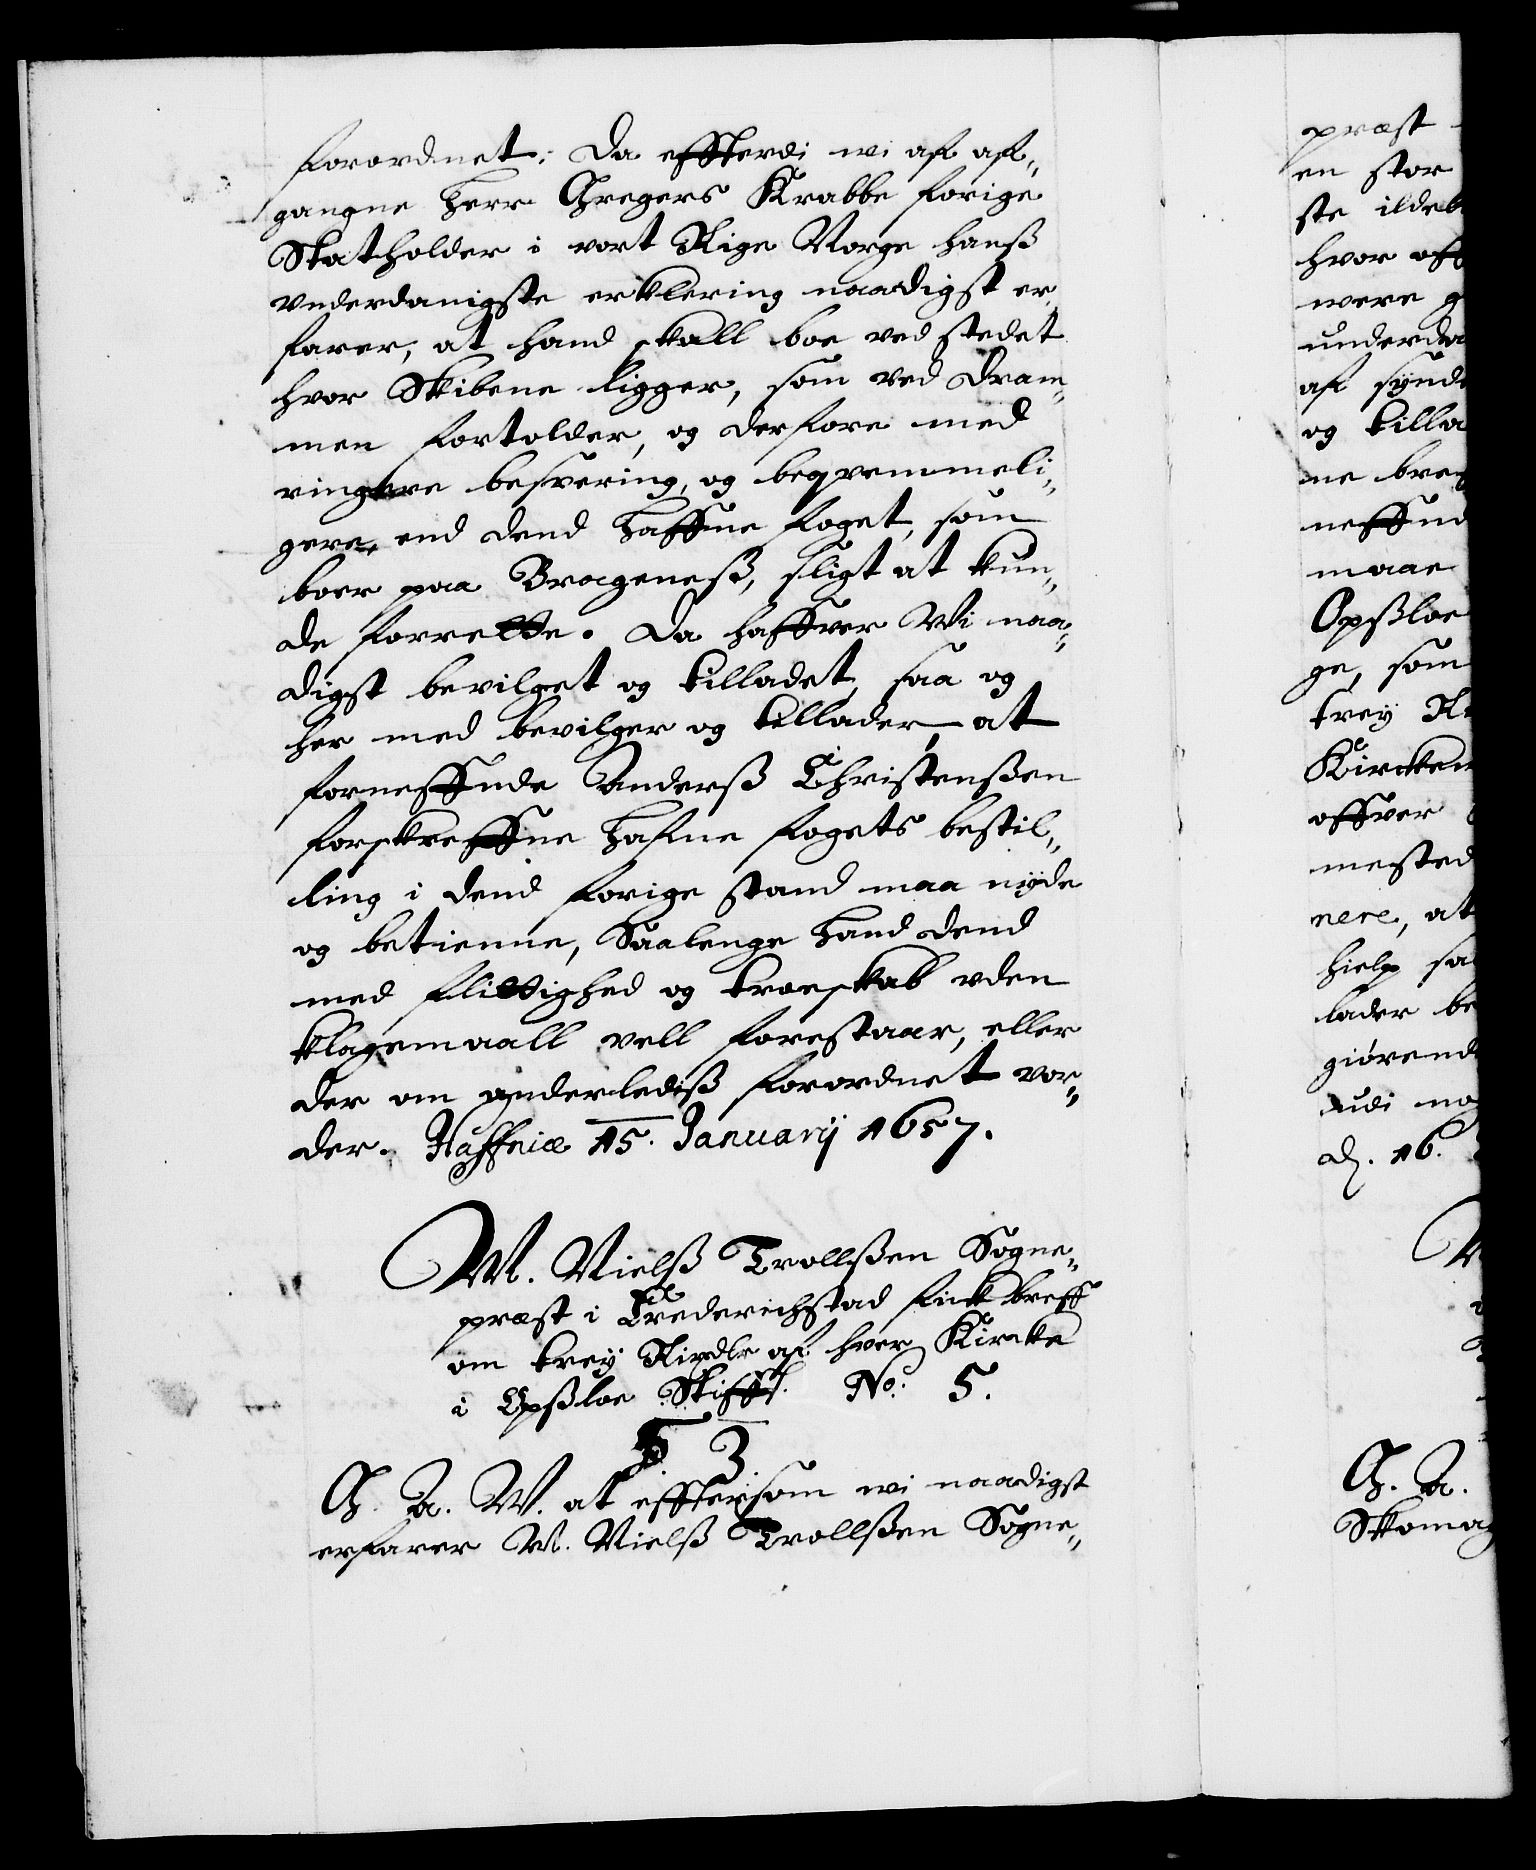 forordnet: Da effterdi wi af af„
gangne Herr Gregers Krabbe forige
Statholder i vort Rige Norge hanß
vnderdanigste erklering naadigst er„
farer, at hand skall boe ved stedet
hvor Skibene ligger, som ved Dram„
men fortolder, og derfore med
ringere besvering, og beqvemmeli„
gere, end dend Haffne foget, som
boer paa Brageneß, sligt at kun„
de forrette. Da haffver Wi naa„
digst bevilget og tilladet, saa og
her med bevilger og tillader, at
forneffnde Anderß Christenßen
forskreffne Hafne fogets bestil„
ling i dend forige stand maa nyde
og betienne, Saalenge Hand dend
med flittighed og troeskab vden
klagemaall vell forestaar, eller
der om anderlediß forordnet vor„
der. Haffniæ 15. Januarij 1657.
M. Nielß Trollßen Sogne„
præst i Frederichstad fick breff
om trey Rixdlr af hver Kircke
i Opßloe Stifft. No. 5.
5 3
G. A. W. at effttersom wi naadigst
erfarer M. Nielß Trollßen Sogne„
præst
en stor
ste ildeb
hvor off
were g
underda
af synd
og tilla
ne bre
neffnd
maae
Opßloe
ge, som
trey Ri
Kircken
offver
mested
nere, at
hielp sa
lader be
giørend
udi no
d. 16.
G. A.
Skomag